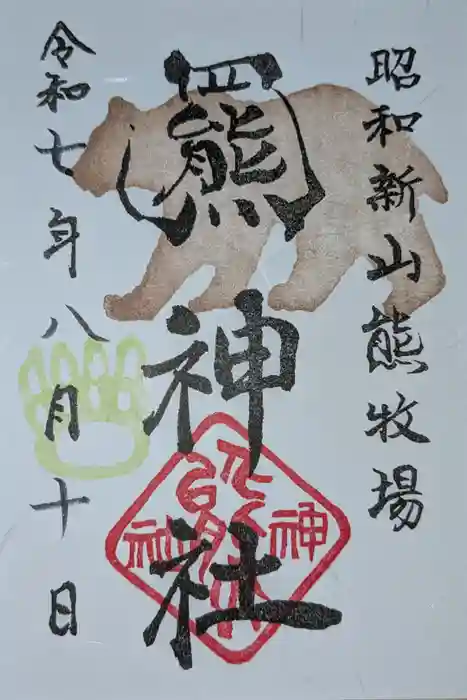 昭和新山熊牧場
羆神社
神
社
令和七年八月十日